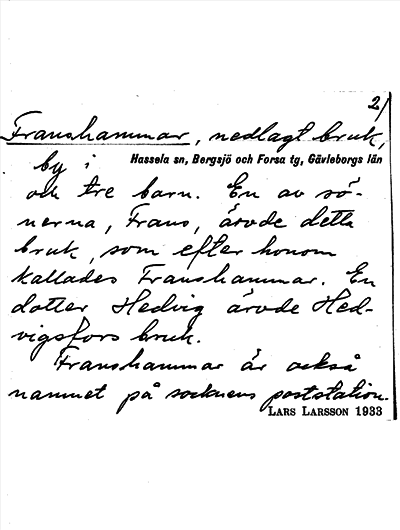 2/
Franshammar, nedlagt bruk,
by i
Hassela sn, Bergsjö och Forsa tg, Gävleborgs län
och tre barn. En av sö-
nerna, Frans, ärvde detta
bruk, som efter honom
kallades Franshammar. En
dotter Hedvig ärvde Hed-
vigsfors bruk.
Franshammar är också
namnet på socknens poststation.
LARS LARSSON 1933